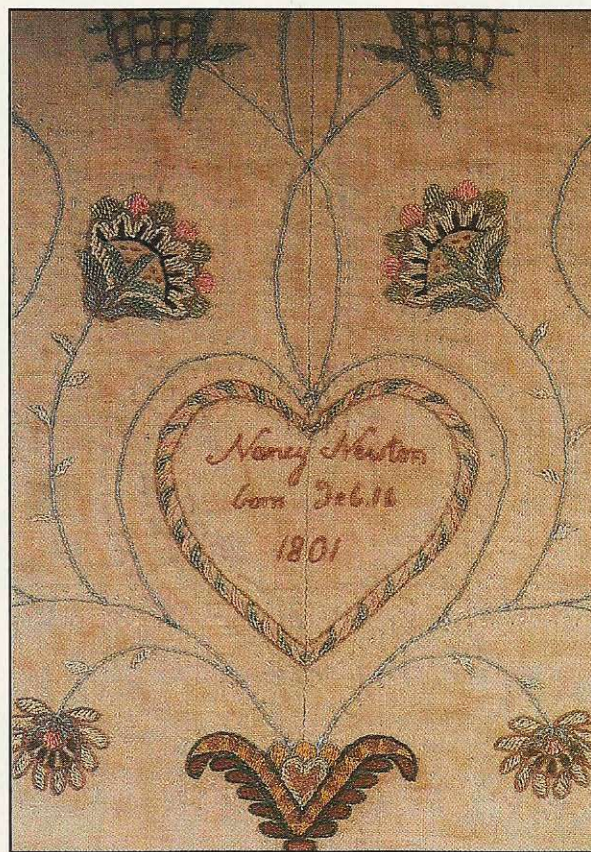 Nancy Newton
born Feb. 16
1801